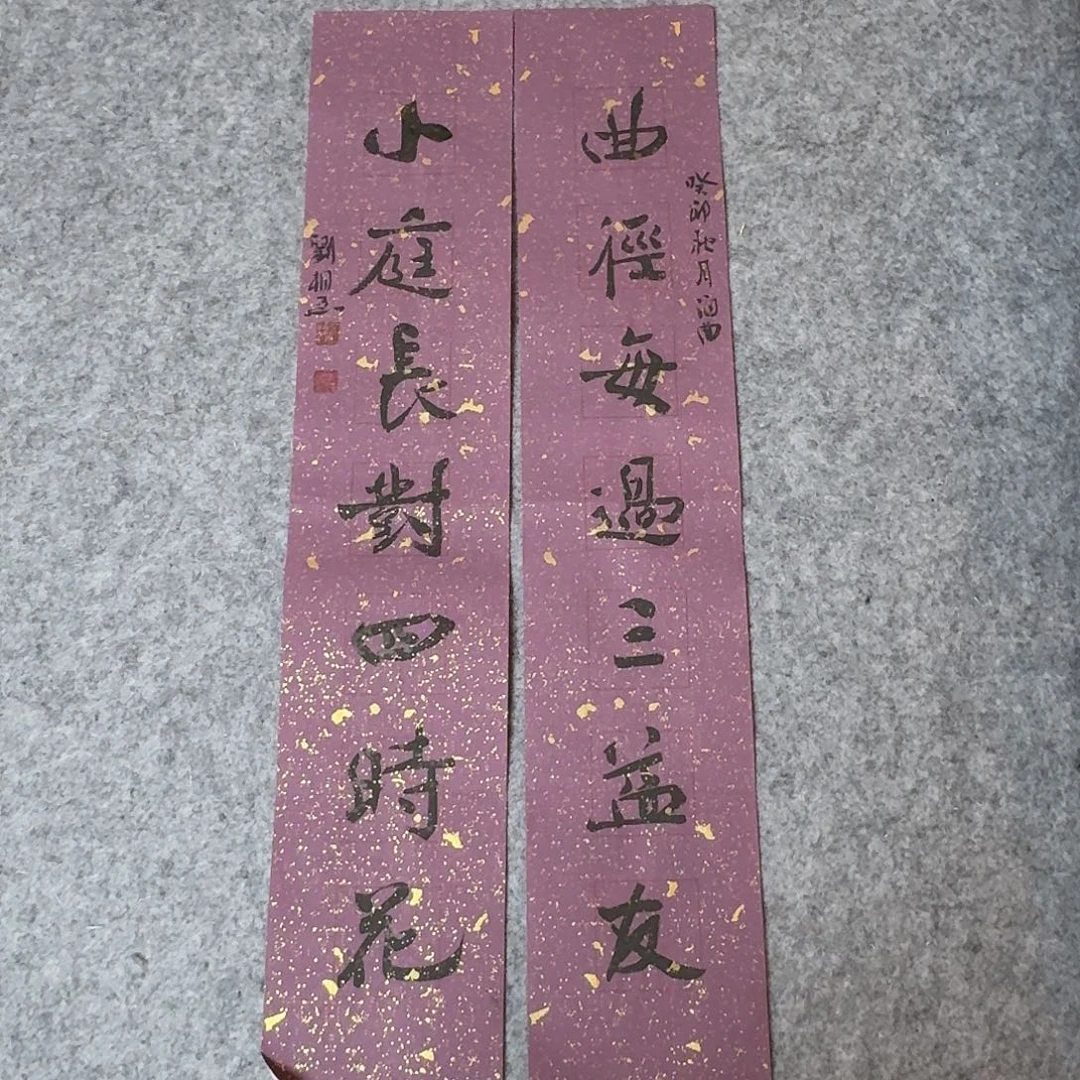 癸卯秋月
曲徑每過三益友
小庭長對四時花
劉